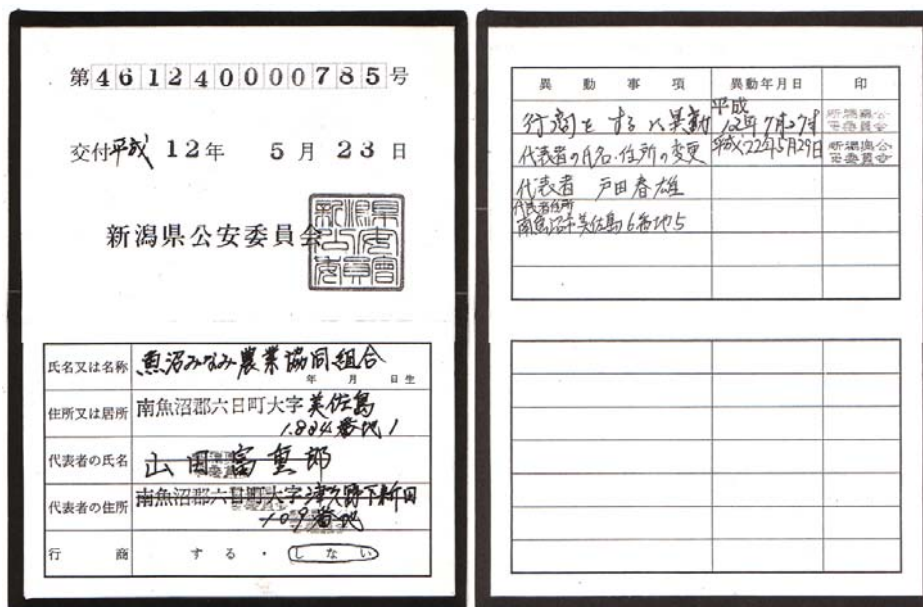 第461240000785号
交付平成 12年 5月23日
新潟県公安委員会
新潟県公安委員會
氏名又は名称 魚沼みなみ農業協同組合
年 月 日生
住所又は居所 南魚沼郡六日町大字美佐島
1,884番地1
代表者の氏名 山田富重郎
代表者の住所 南魚沼郡六日町大字津久野下新田
109番地
行商 する・しない
異動事項 異動年月日 印
行商をするに異動 平成12年7月27日 新潟県公安委員会
代表者の氏名・住所の変更 平成22年5月29日 新潟県公安委員会
代表者 戸田春雄
代表者住所
南魚沼市美佐島6番地5